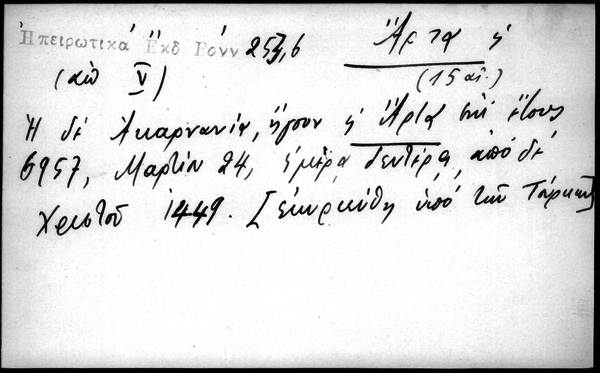 Ἠπειρωτικά Ἔκδ Βόνν 257,6 Ἄρτα ἡ
(αἰὼ V) (15 αἰ.)
Ἡ δὲ Ἀκαρνανία, ἤγουν ἡ Ἄρτα ἐπὶ ἔτους
6957, Μαρτίου 24, ἡμέρᾳ δευτέρᾳ, ἀπό δὲ
Χριστοῦ 1449. [ἐκυριεύθη ὑπό τῶν Τούρκων]